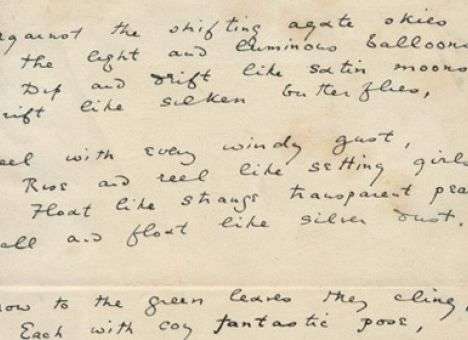 against the shifting agate skies
The light and luminous balloons
Dip and drift like satin moons
rift like silken butterflies,
eel with every windy gust,
Rise and reel like girls
Float like strange transparent pea
all and float like silver dust.
now to the green leaves they cling,
Each with coy fantastic pose,